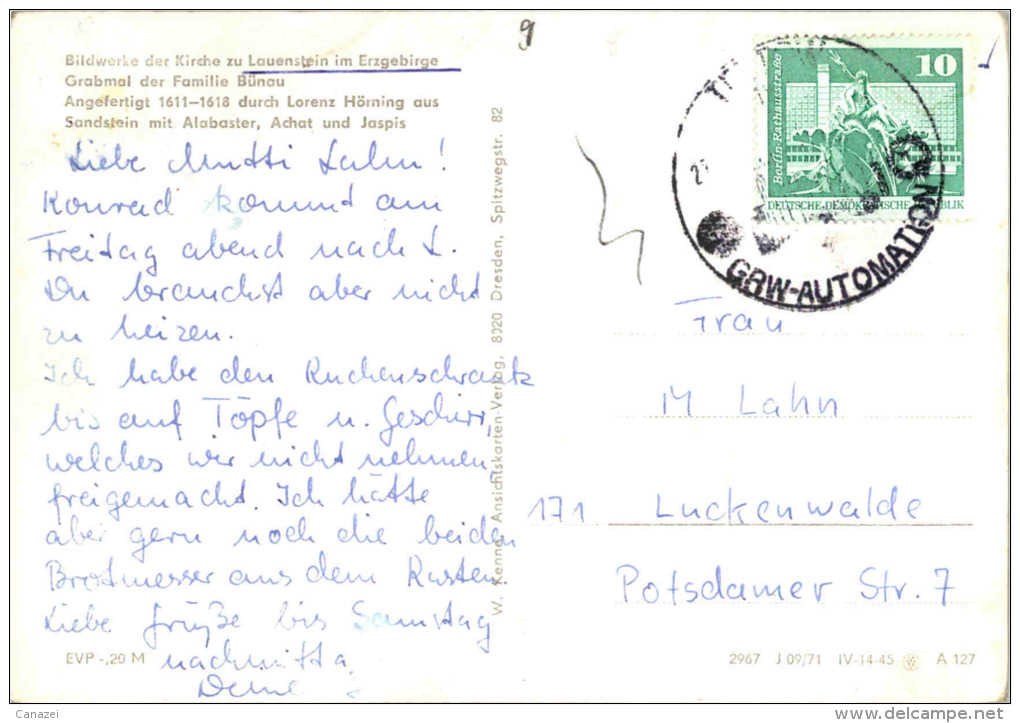 9
Bildwerke der Kirche zu Lauenstein im Erzgebirge
Grabmal der Familie Bünau
Angefertigt 1611–1618 durch Lorenz Hörning aus
Sandstein mit Alabaster, Achat und Jaspis
Liebe Mutti Lahn!
Konrad kommt am
Freitag abend nach L.
Du brauchst aber nicht
zu heizen.
Ich habe den Kuchenschrank
bis auf Töpfe u. Geschirr,
welches wir nicht nehmen,
freigemacht. Ich hätte
aber gern noch die beiden
Brotmesser aus dem Kasten.
Liebe Grüße bis Samstag
nachmittag
Deine
EVP -,20 M
W. Kenne, Ansichtskarten-Verlag, 8020 Dresden, Spitzwegstr. 82
10
Berlin-Rathausstraße
DEUTSCHE DEMOKRATISCHE REPUBLIK
GRW-AUTOMATION
Frau
M Lahn
171 Luckenwalde
Potsdamer Str. 7
2967 J 09/71 IV-14-45 A 127
Canazei
www.delcampe.net